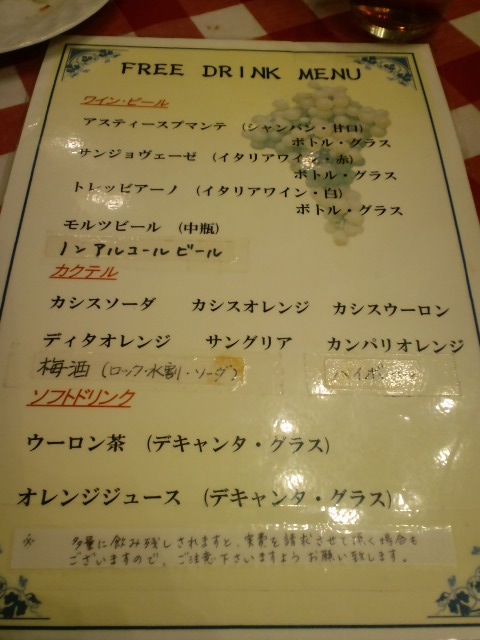 FREE DRINK MENU
ワイン・ビール
アスティースプマンテ （シャンパン・甘口）
ボトル・グラス
サンジョヴェーゼ （イタリアワイン・赤）
ボトル・グラス
トレッビアーノ （イタリアワイン・白）
ボトル・グラス
モルツビール （中瓶）
ノンアルコールビール
カクテル
カシスソーダ カシスオレンジ カシスウーロン
ディタオレンジ サングリア カンパリオレンジ
梅酒（ロック・水割・ソーダ）
ソフトドリンク
ウーロン茶 （デキャンタ・グラス）
オレンジジュース （デキャンタ・グラス）
※ 多量に飲み残しされますと、実費を請求させて頂く場合も
ございますので、ご注意下さいますようお願い致します。